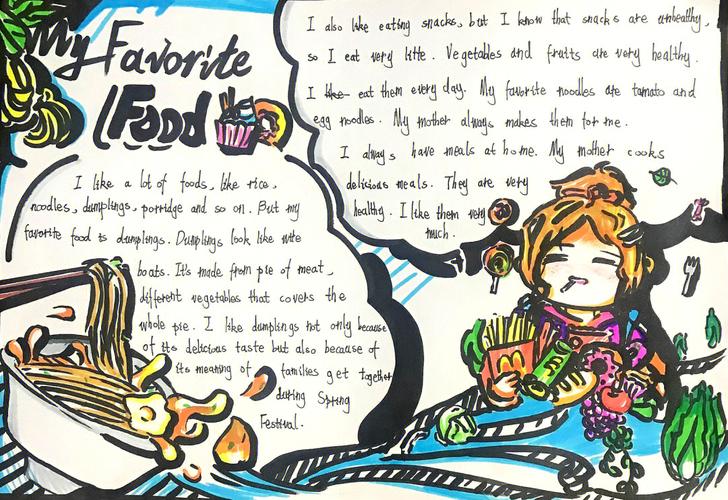 My Favorite
Food
I like a lot of foods, like rice,
noodles, dumplings, porridge and so on. But my
favorite food is dumplings. Dumplings look like wite
boats. It's made from pie of meat,
different vegetables that covers the
whole pie. I like dumplings not only because
of its delicious taste but also because of
its meaning of families get together
during Spring
Festival.
I also like eating snacks, but I know that snacks are unbealthy,
so I eat very litte. Vegetables and fruits are very healthy.
I like eat them every day. My favorite noodles are tomato and
egg noodles. My mother always makes them for me.
I always have meals at home. My mother cooks
delicious meals. They are very
healthy. I like them very
much.